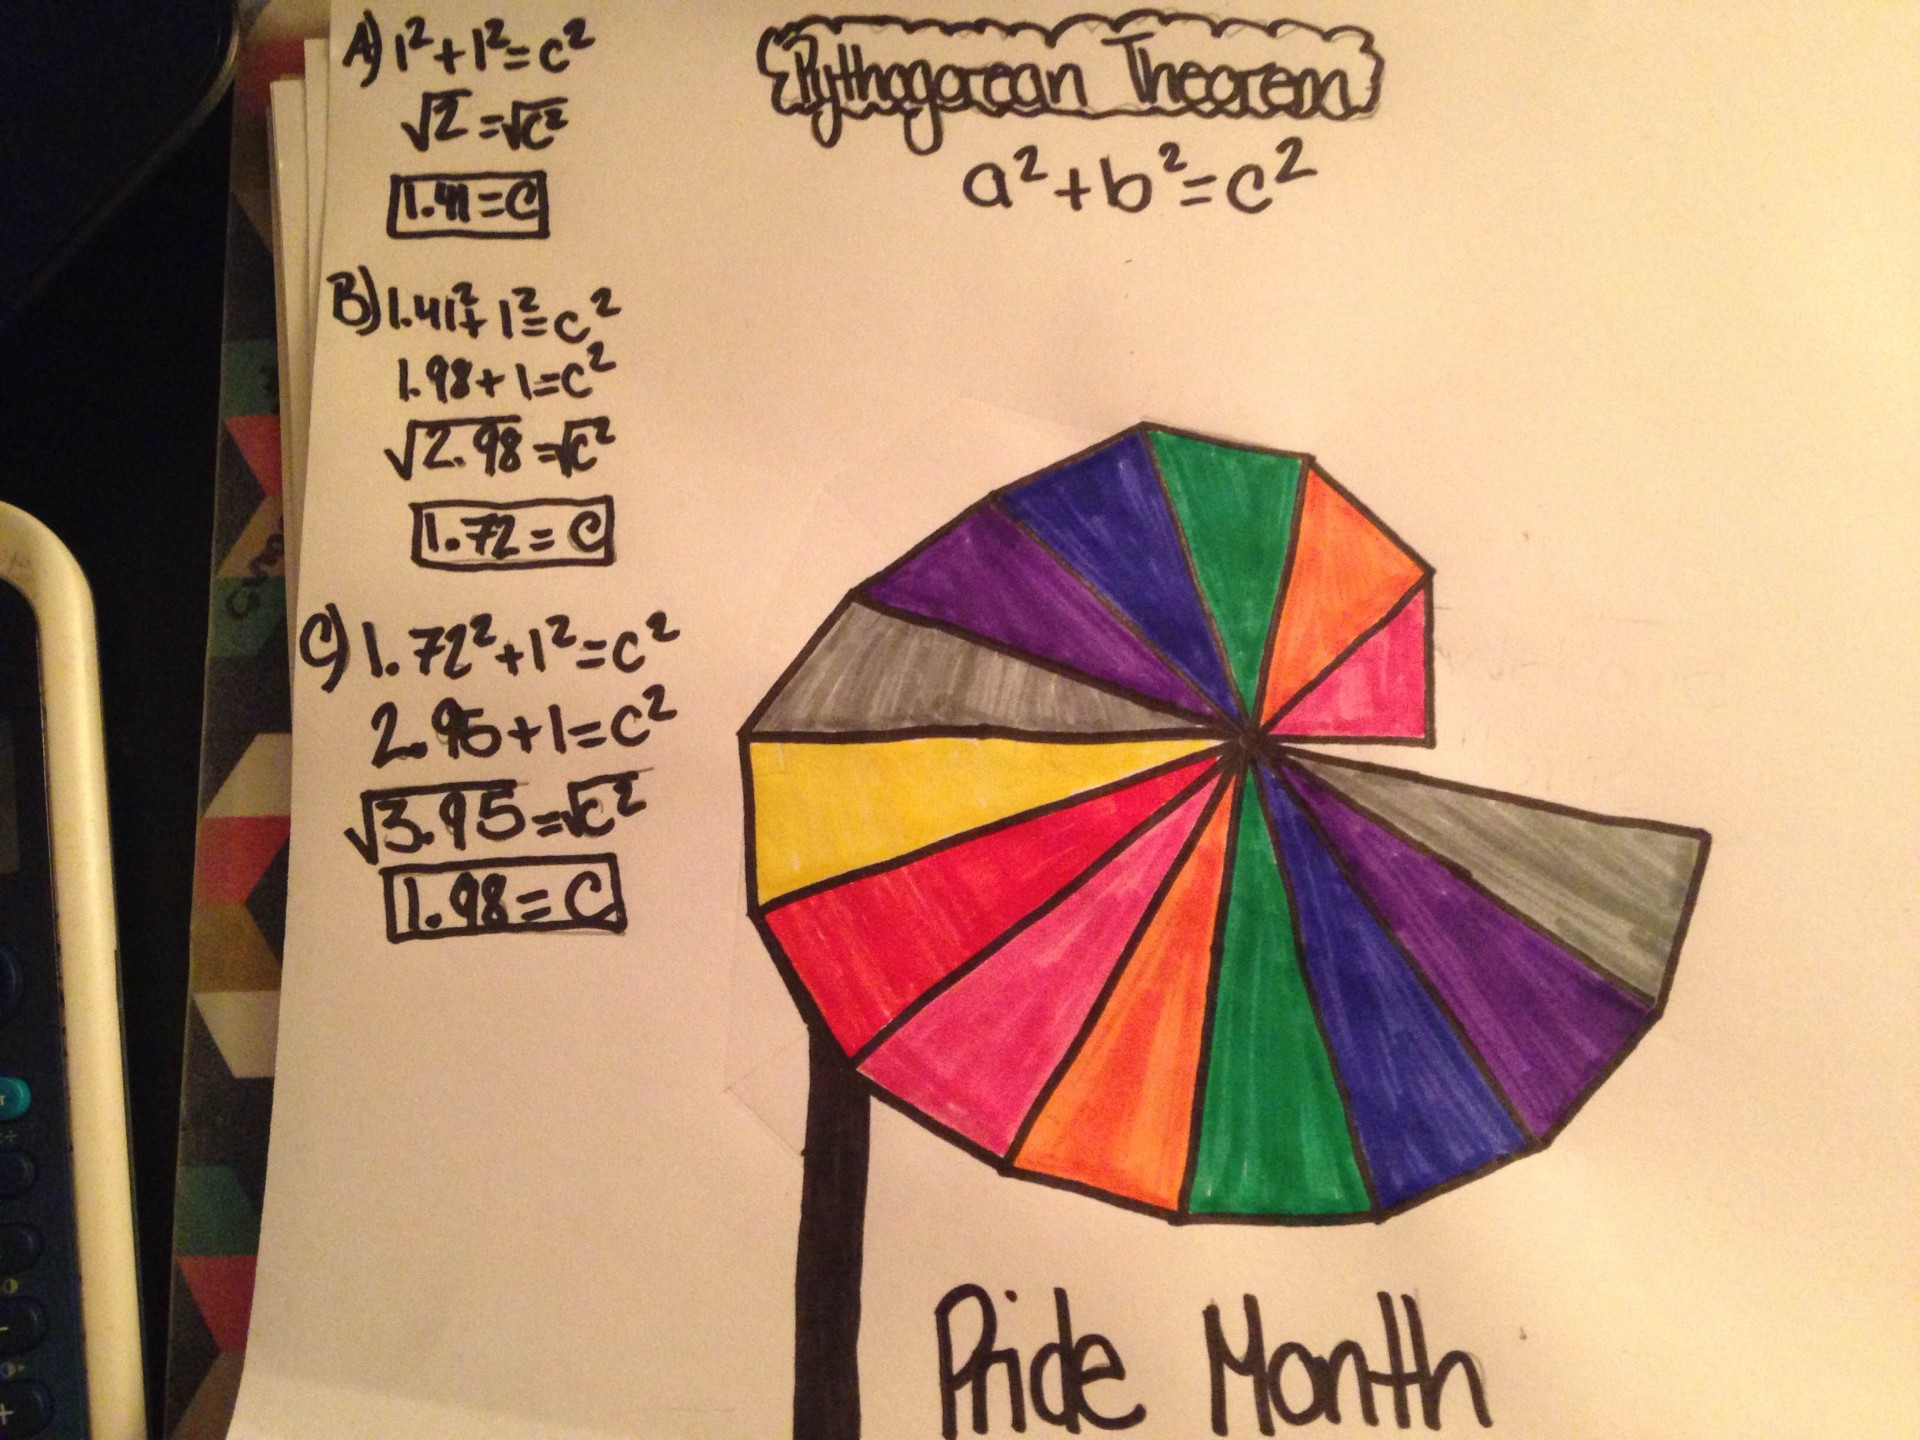 A) 1²+1²=c²
√2=√c²
1.41=C
B) 1.41²+1²=c²
1.98+1=c²
√2.98=√c²
1.72=C
C) 1.72²+1²=c²
2.95+1=c²
√3.95=√c²
1.98=C
Pythagorean Theorem
a²+b²=c²
Pride Month